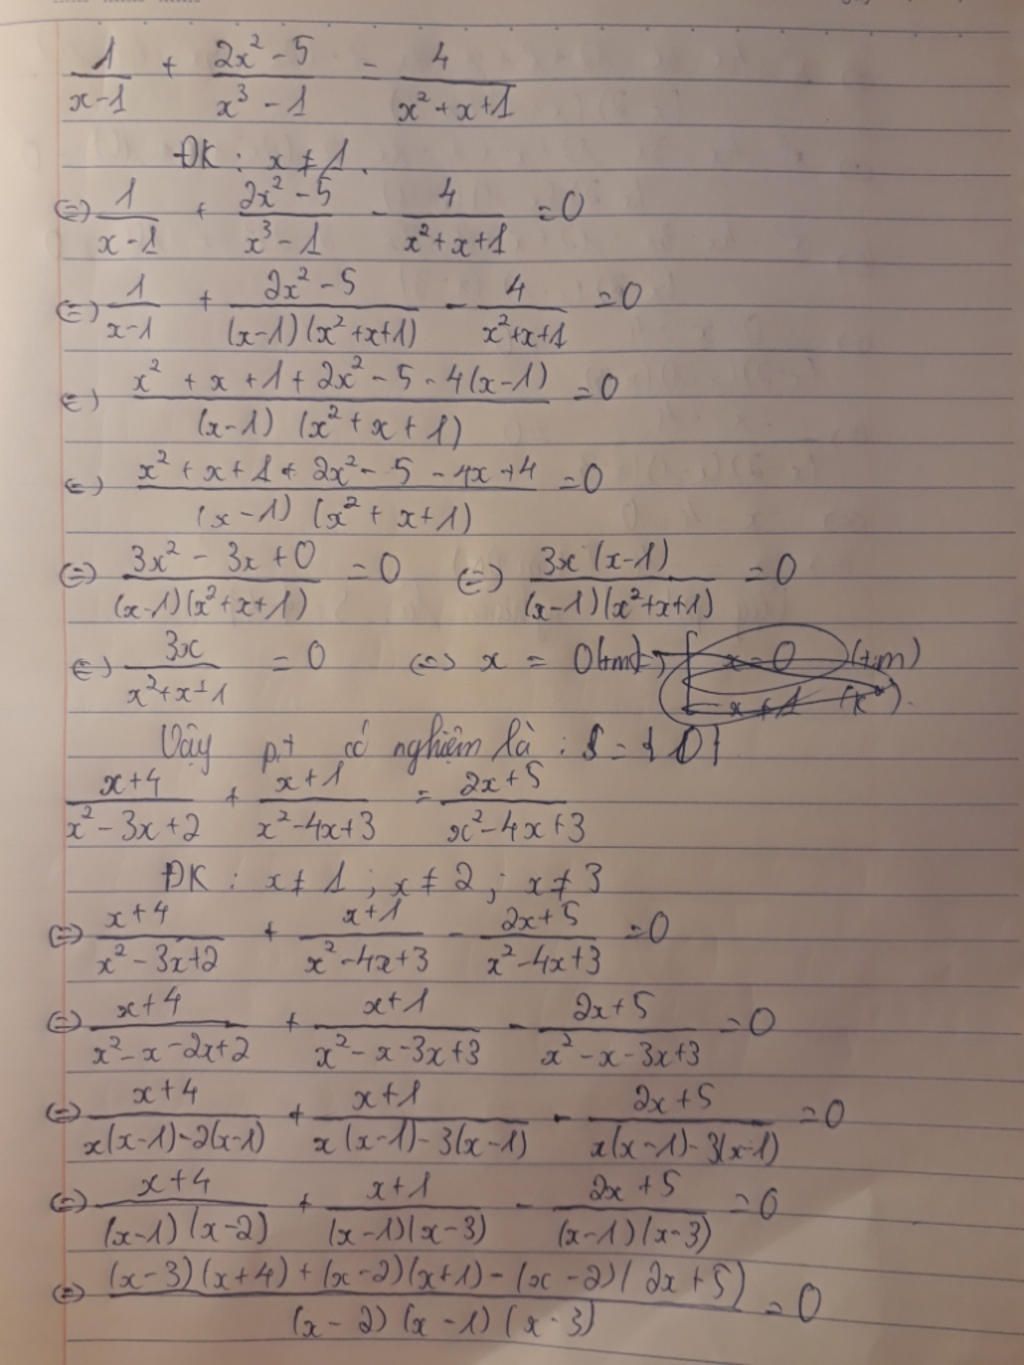 1/(x-1) + (2x² - 5)/(x³ - 1) = 4/(x² + x + 1)
ĐK : x ≠ 1.
⇔) 1/(x-1) + (2x² - 5)/(x³ - 1) - 4/(x² + x + 1) = 0
⇔) 1/(x-1) + (2x² - 5)/((x-1)(x² + x + 1)) - 4/(x² + x + 1) = 0
⇔) (x² + x + 1 + 2x² - 5 - 4(x-1))/((x-1)(x² + x + 1)) = 0
⇔) (x² + x + 1 + 2x² - 5 - 4x + 4)/((x-1)(x² + x + 1)) = 0
⇔) (3x² - 3x + 0)/((x-1)(x² + x + 1)) = 0 ⇔) 3x(x-1)/((x-1)(x² + x + 1)) = 0
⇔) 3x/(x² + x + 1) = 0 ⇔ x = 0 (tm) x = 0 (tm)
Vậy pt có nghiệm là : S = {0}
(x+4)/(x² - 3x + 2) + (x+1)/(x² - 4x + 3) = (2x+5)/(x² - 4x + 3)
ĐK : x ≠ 1 ; x ≠ 2 ; x ≠ 3
⇔) (x+4)/(x² - 3x + 2) + (x+1)/(x² - 4x + 3) - (2x+5)/(x² - 4x + 3) = 0
⇔) (x+4)/(x² - x - 2x + 2) + (x+1)/(x² - x - 3x + 3) - (2x+5)/(x² - x - 3x + 3) = 0
⇔) (x+4)/(x(x-1) - 2(x-1)) + (x+1)/(x(x-1) - 3(x-1)) - (2x+5)/(x(x-1) - 3(x-1)) = 0
⇔) (x+4)/((x-1)(x-2)) + (x+1)/((x-1)(x-3)) - (2x+5)/((x-1)(x-3)) = 0
⇔) ((x-3)(x+4) + (x-2)(x+1) - (x-2)(2x+5))/((x-2)(x-1)(x-3)) = 0